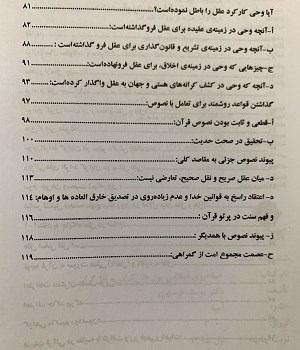 آیا وحی کارکرد عقل را باطل نموده‌است؟ ........ ۸۱
أ-آنچه وحی در زمینه‌ی عقیده برای عقل فروگذاشته‌است: ........ ۸۲
ب-آنچه وحی در زمینه‌ی تشریع و قانون‌گذاری برای عقل فرو گذاشته‌است: ........ ۸۸
ج-چیزهایی که وحی در زمینه‌ی اخلاق، برای عقل فرونهاده‌است: ........ ۹۱
د-آنچه که وحی در کشف کرانه‌های هستی و جهان به عقل واگذار کرده‌است: ........ ۹۳
گذاشتن قواعد روشمند برای تعامل با نصوص: ........ ۹۷
أ-قطعی و ثابت بودن نصوص قرآن: ........ ۹۸
ب-تحقیق در صحت حدیث: ........ ۱۰۰
پیوند نصوص جزئی به مقاصد کلی: ........ ۱۱۰
د- میان عقل صریح و نقل صحیح، تعارضی نیست: ........ ۱۱۳
ه- اعتقاد راسخ به قوانین خدا و عدم زیاده‌روی در تصدیق خارق العاده ها و اوهام: ۱۱۴
و فهم سنت در پرتو قرآن: ........ ۱۱۶
ز- پیوند نصوص با همدیگر: ........ ۱۱۸
ح-عصمت مجموع امت از گمراهی: ........ ۱۱۹